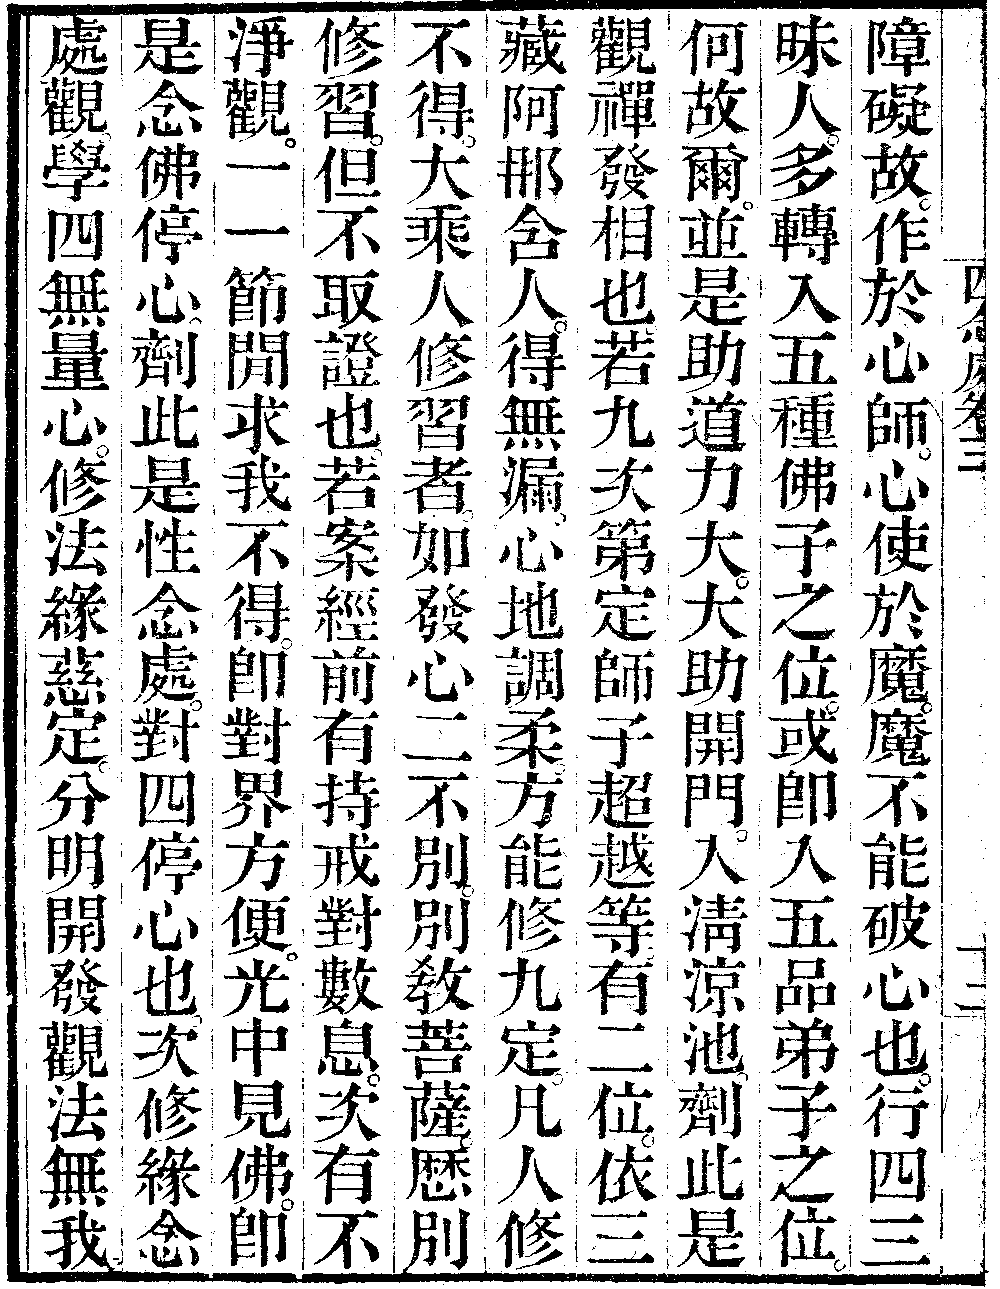 障礙故。作於心師。心使於魔。魔不能破心也。行四三
昧人。多轉入五種佛子之位。或卽入五品弟子之位。
何故爾。並是助道力大。大助開門。入淸涼池。劑此是
觀禪發相也。若九次第定師子超越等。有二位。依三
藏阿那含人。得無漏。心地調柔。方能修九定。凡人修
不得。大乘人修習者。如發心二不別。別教菩薩。歷別
修習。但不取證也。若案經前有持戒對數息。次有不
淨觀。一一節閒求我不得。卽對界方便。光中見佛。卽
是念佛停心。劑此是性念處。對四停心也。次修緣念
處觀。學四無量心。修法緣慈定。分明開發觀法無我。
四念處卷三
十二